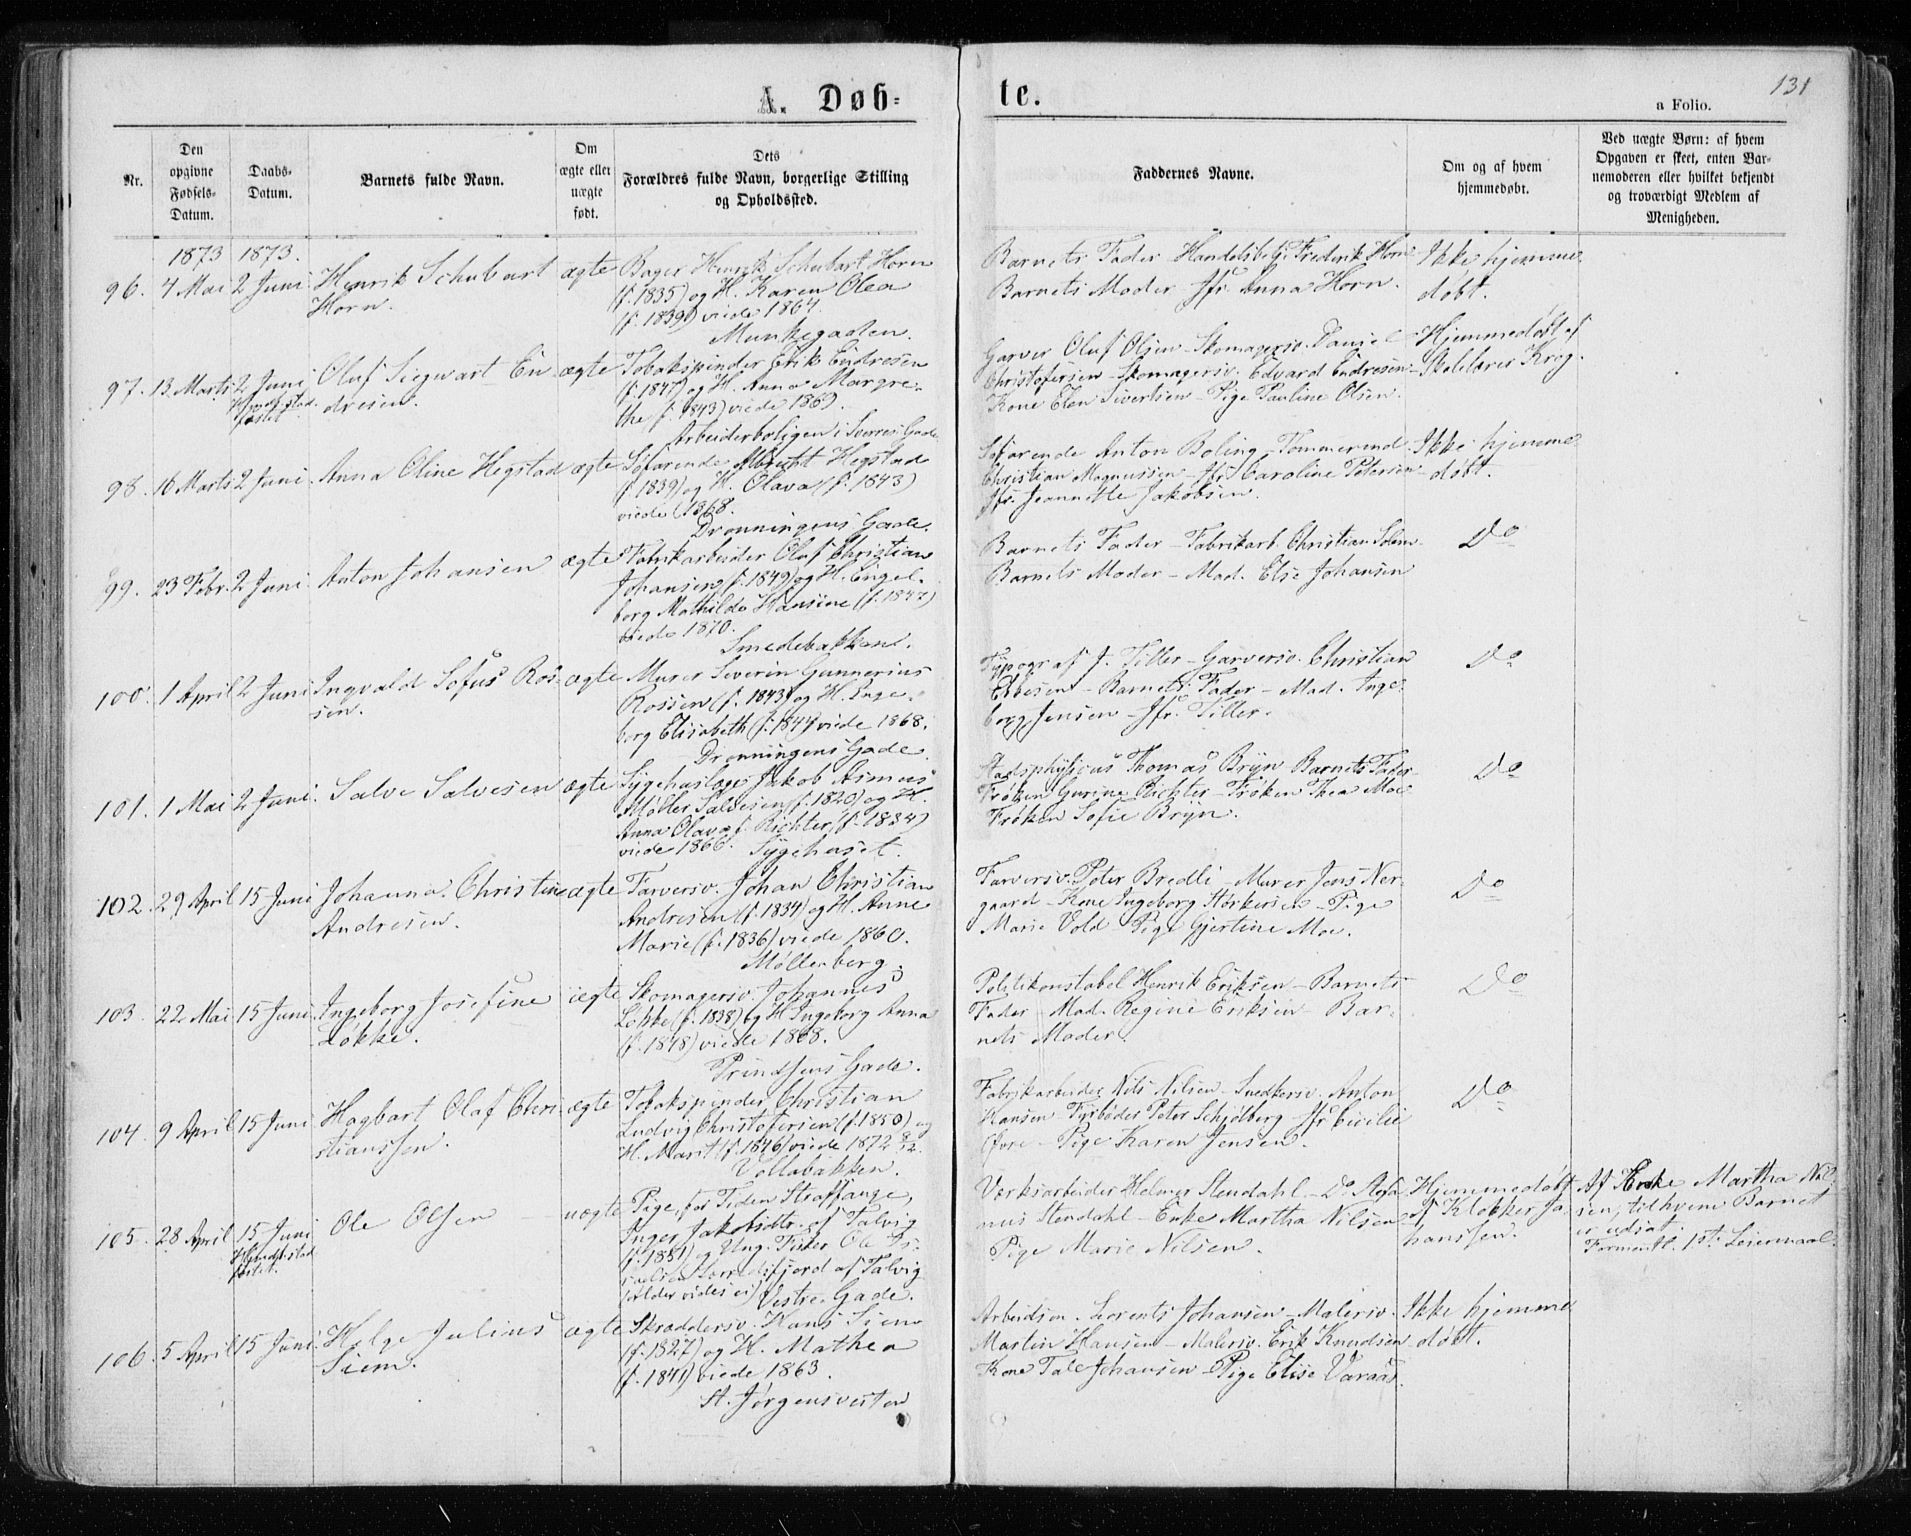 A. Døb-
te.
131
a Folio.
Nr.
Den
opgivne
Fødsels-
Datum.
Daabs-
Datum.
Barnets fulde Navn.
Om
ægte eller
uægte
født.
Dets
Forældres fulde Navn, borgerlige Stilling
og Opholdssted.
Faddernes Navne.
Om og af hvem
hjemmedøbt.
Ved uægte Børn: af hvem
Opgaven er skeet, enten Bar-
nemoderen eller hvilket bekjendt
og troværdigt Medlem af
Menigheden.
1873 1873.
96. 4 Mai 2 Juni Henrik Schubart
Horn.
ægte
Bager Henrik Schubart Horn
(f. 1835) og H. Karen Olea
(f. 1839) viede 1864.
Munkegaden.
Barnets Fader - Frederik Horn
Barnets Moder - Jfr. Anna Horn.
Ikke hjemme
døbt.
97. 13 Marts 2 Juni
Oluf Siegwart En
dresen.
ægte
Tobakspinder Erik Endresen
(f. 1847) og H. Anna Margre-
the (f. 1843) viede 1869.
Arbeiderboligen i Sverres Gade
Garver Oluf Olsen - Skomagersv. Daniel
Christofersen - Skomagersv. Edvard Endresen
Kone Elen Sivertsen - Pige Pauline Olsen.
Hjemmedøbt af
Krog.
98. 16 Marts 2 Juni Anna Oline Hegstad
ægte
Søfarende Albrigt Hegstad
(f. 1839) og H. Olava (f. 1843)
viede 1868.
Dronningens Gade.
Søfarende Anton Boling - Tømmermd
Christian Magnussen - Jfr. Caroline Petersen
Jfr. Jeannette Jakobsen.
Ikke hjemme
døbt.
99. 23 Febr. 2 Juni Anton Johansen
ægte
Fabrikarbeider Oluf Christian
Johansen (f. 1849) og H. Engel-
borg Mathilde Hansine (f. 1847)
viede 1870.
Smedebakken.
Barnets Fader - Fabrikarb. Christian
Barnets Moder - Mad. Else Johansen
Do
100. 1 April 2 Juni Ingvald Sofus Ros-
sen.
ægte
Murer Severin Gunnerius
Rossen (f. 1843) og H. Inge-
borg Elisabeth (f. 1844) viede 1868.
Dronningens Gade.
Typograf J. Tiller - Garversv. Christian
Ebbesen - Barnets Fader - Mad. Inge-
borg Jensen - Jfr. Tiller.
Do
101. 1 Mai 2 Juni. Salve Salvesen
ægte
Sygehuslæge Jakob Asmus
Møller Salvesen (f. 1820) og H.
Anna Olava f. Richter (f. 1834)
viede 1866. Sygehuset.
Stadsphysicus Thomas Bryn Barnets Fader
Frøken Gurine Richter - Frøken Thea Moe
Frøken Sofie Bryn.
Do
102. 29 April 15 Juni Johanna Christine
Andresen.
ægte
Farversv. Johan Christian
Andresen (f. 1834) og H. Anne
Marie (f. 1836) viede 1860.
Møllenberg.
Farversv. Peter Bredli - Murer Jens Ner-
gaard - Kone Ingeborg Størkersen - Pige
Marie Vold Pige Gjertine Moe.
Do
103. 22 Mai 15 Juni Ingeborg Josefine
Løkke.
ægte
Skomagersv. Johannes
Løkke (f. 1838) og H. Ingeborg Anna
(f. 1848) viede 1868.
Prindsens Gade.
Politikonstabel Henrik Eriksen - Barnets
Fader - Mad. Regine Eriksen - Bar-
nets Moder.
Do
104. 9 April 15 Juni Hagbart Olaf Chri
stianssen.
ægte
Tobakspinder Christian
Ludvig Christofersen (f. 1850) og
H. Marit (f. 1846) viede 1872
Vollabakken.
Fabrikarbeider Nils Nilsen - Snedkersv. Anton
Hansen Fyrbøder Peter Schjølberg - Jfr Cecilie
Øvre - Pige Karen Jensen.
Do
105. 28 April 15 Juni
Ole Olsen
uægte
Pige, for Tiden Straffange,
Inger Jakobsdtr. af Talvig
(f. 1851) og Ung. Fisker Ole
af Talvig
(Alder vides ei) Vestre Gade.
Værksarbeider Helmer Stendahl - Do Stefa
nus Stendahl - Enke Martha Nilsen
Pige Marie Nilsen.
Hjemmedøbt
af Klokker Jo
hanssen.
Af Enke Martha Nil-
sen, til hvem Barnet
er udsat.
Formentl. 1ste Leiermaal.
106. 5 April 15 Juni Helge Julius
Siem.
ægte
Skræddersv. Hans Siem
(f. 1827) og H. Mathea
(f. 1841) viede 1863.
St. Jørgensveiten
Arbeidsm. Lorents Johansen - Malersv.
Martin Hansen - Malersv. Erik Knudsen
Kone Tale Johansen - Pige Elise Varaas.
Ikke hjemme
døbt.